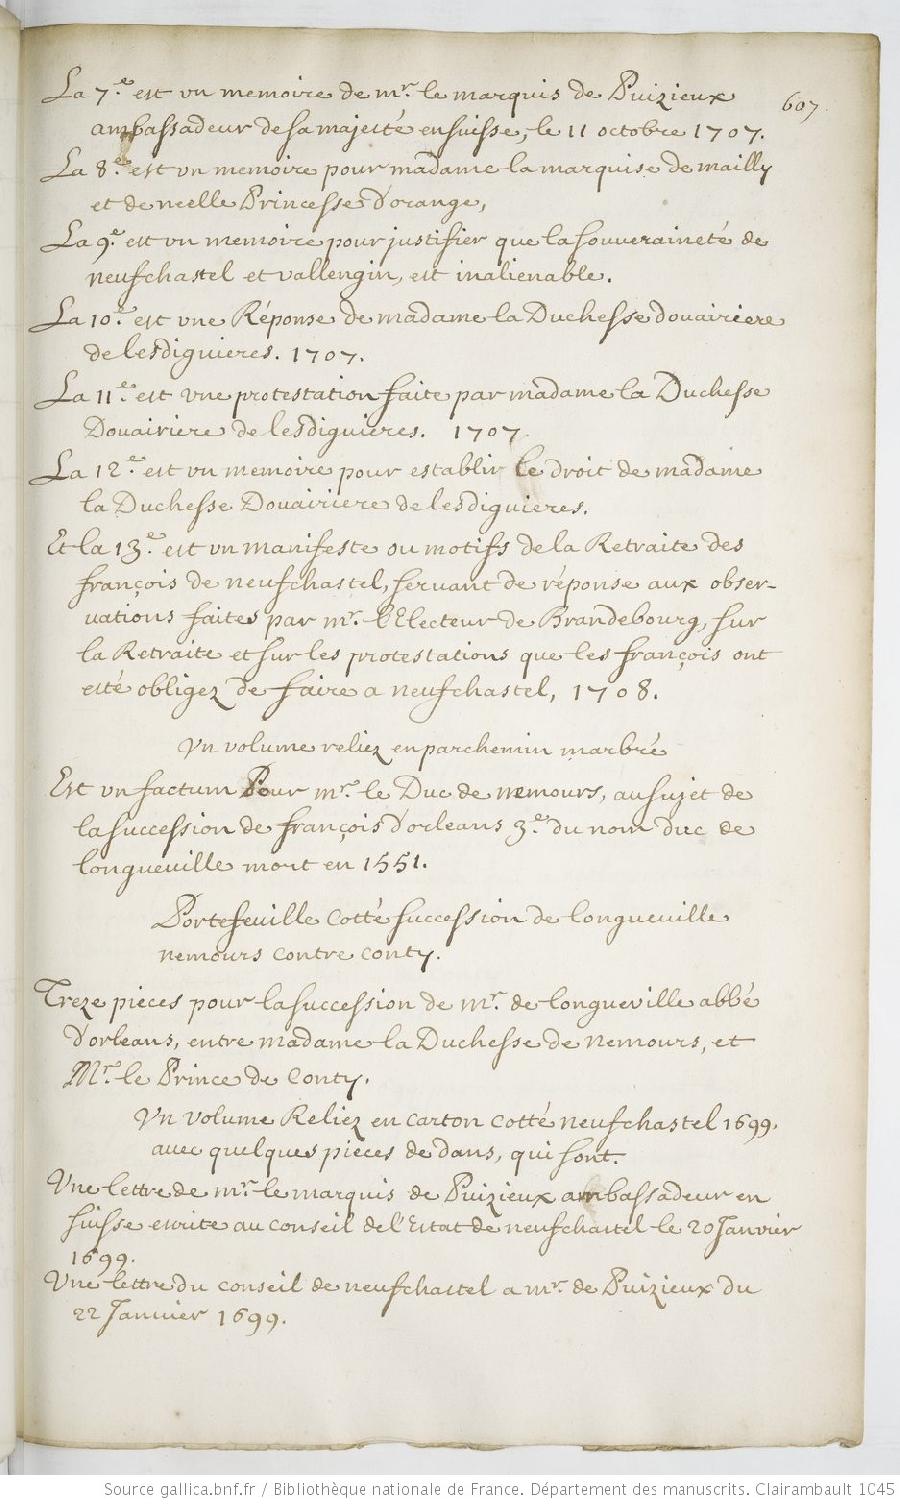 607.
La 7.e est vn memoire de mr. le marquis de Puizieux
ambassadeur de sa majesté en suisse, le 11 octobre 1707.
La 8.e est vn memoire pour madame la marquise de mailly
et de neelle Princesse d'orange,
La 9.e est vn memoire pour justifier que la souueraineté de
neufchastel et vallengin, est inalienable.
La 10.e est vne Réponse de madame la Duchesse douairiere
de lesdiguieres. 1707.
La 11.e est vne protestation faite par madame la Duchesse
Douairiere de lesdiguieres. 1707
La 12.e est vn memoire pour establir le droit de madame
la Duchesse Douairiere de lesdiguieres.
Et la 13.e est vn manifeste ou motifs de la Retraite des
françois de neufchastel, servant de réponse aux obser-
vations faites par mr. l'Electeur de Brandebourg, sur
la Retraite et sur les protestations que les françois ont
esté obligez de faire a neufchastel, 1708.
Vn volume reliez en parchemin marbré
Est vn factum Pour mr. le Duc de nemours, au sujet de
la succession de françois d'orleans 3.e du nom duc de
longueuille mort en 1551.
Portefeuille cotté succession de longueuille
nemours contre conty.
Treze pieces pour la succession de mr. de longueville abbé
d'orleans, entre madame la Duchesse de nemours, et
Mr. le Prince de Conty.
Vn volume Reliez en carton cotté neufchastel 1699.
auec quelques pieces dedans, qui sont.
Vne lettre de mr. le marquis de Puizieux ambassadeur en
suisse ecrite au conseil de l'Estat de neufchastel le 20 Janvier
1699.
Vne lettre du conseil de neufchastel a mr. de Puizieux du
22 Janvier 1699.
Source gallica.bnf.fr / Bibliothèque nationale de France. Département des manuscrits. Clairambault 1045